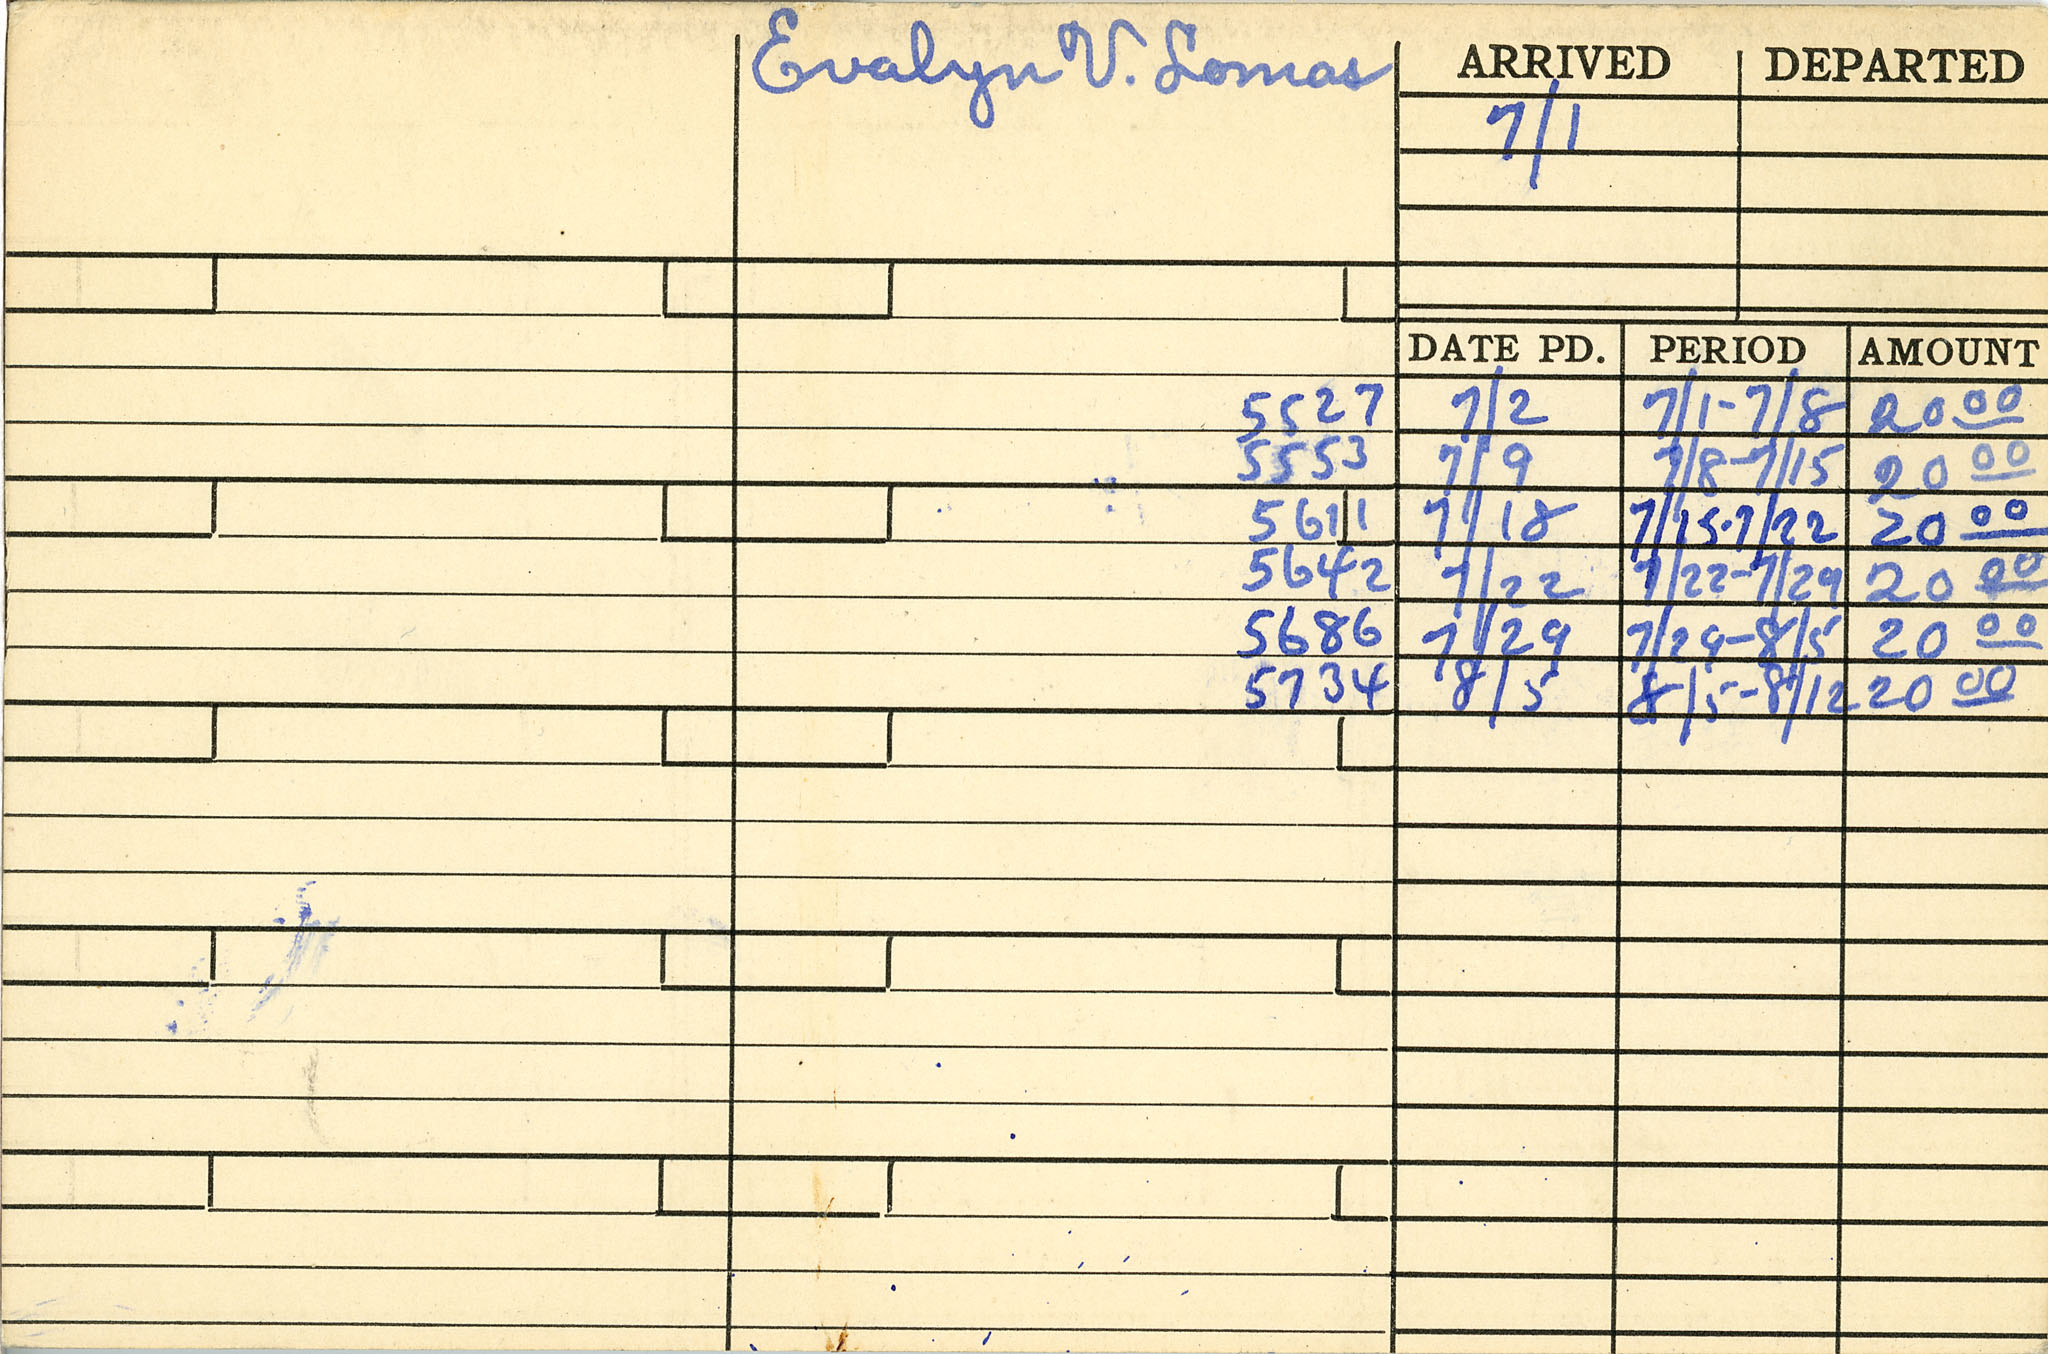 Evalyn V. Lomas
ARRIVED DEPARTED
7/1
DATE PD. PERIOD AMOUNT
5527 7/2 7/1-7/8 20 00
5553 7/9 7/8-7/15 20 00
5611 7/18 7/15-7/22 20 00
5642 7/22 7/22-7/29 20 00
5686 7/29 7/29-8/5 20 00
5734 8/5 8/5-8/12 20 00